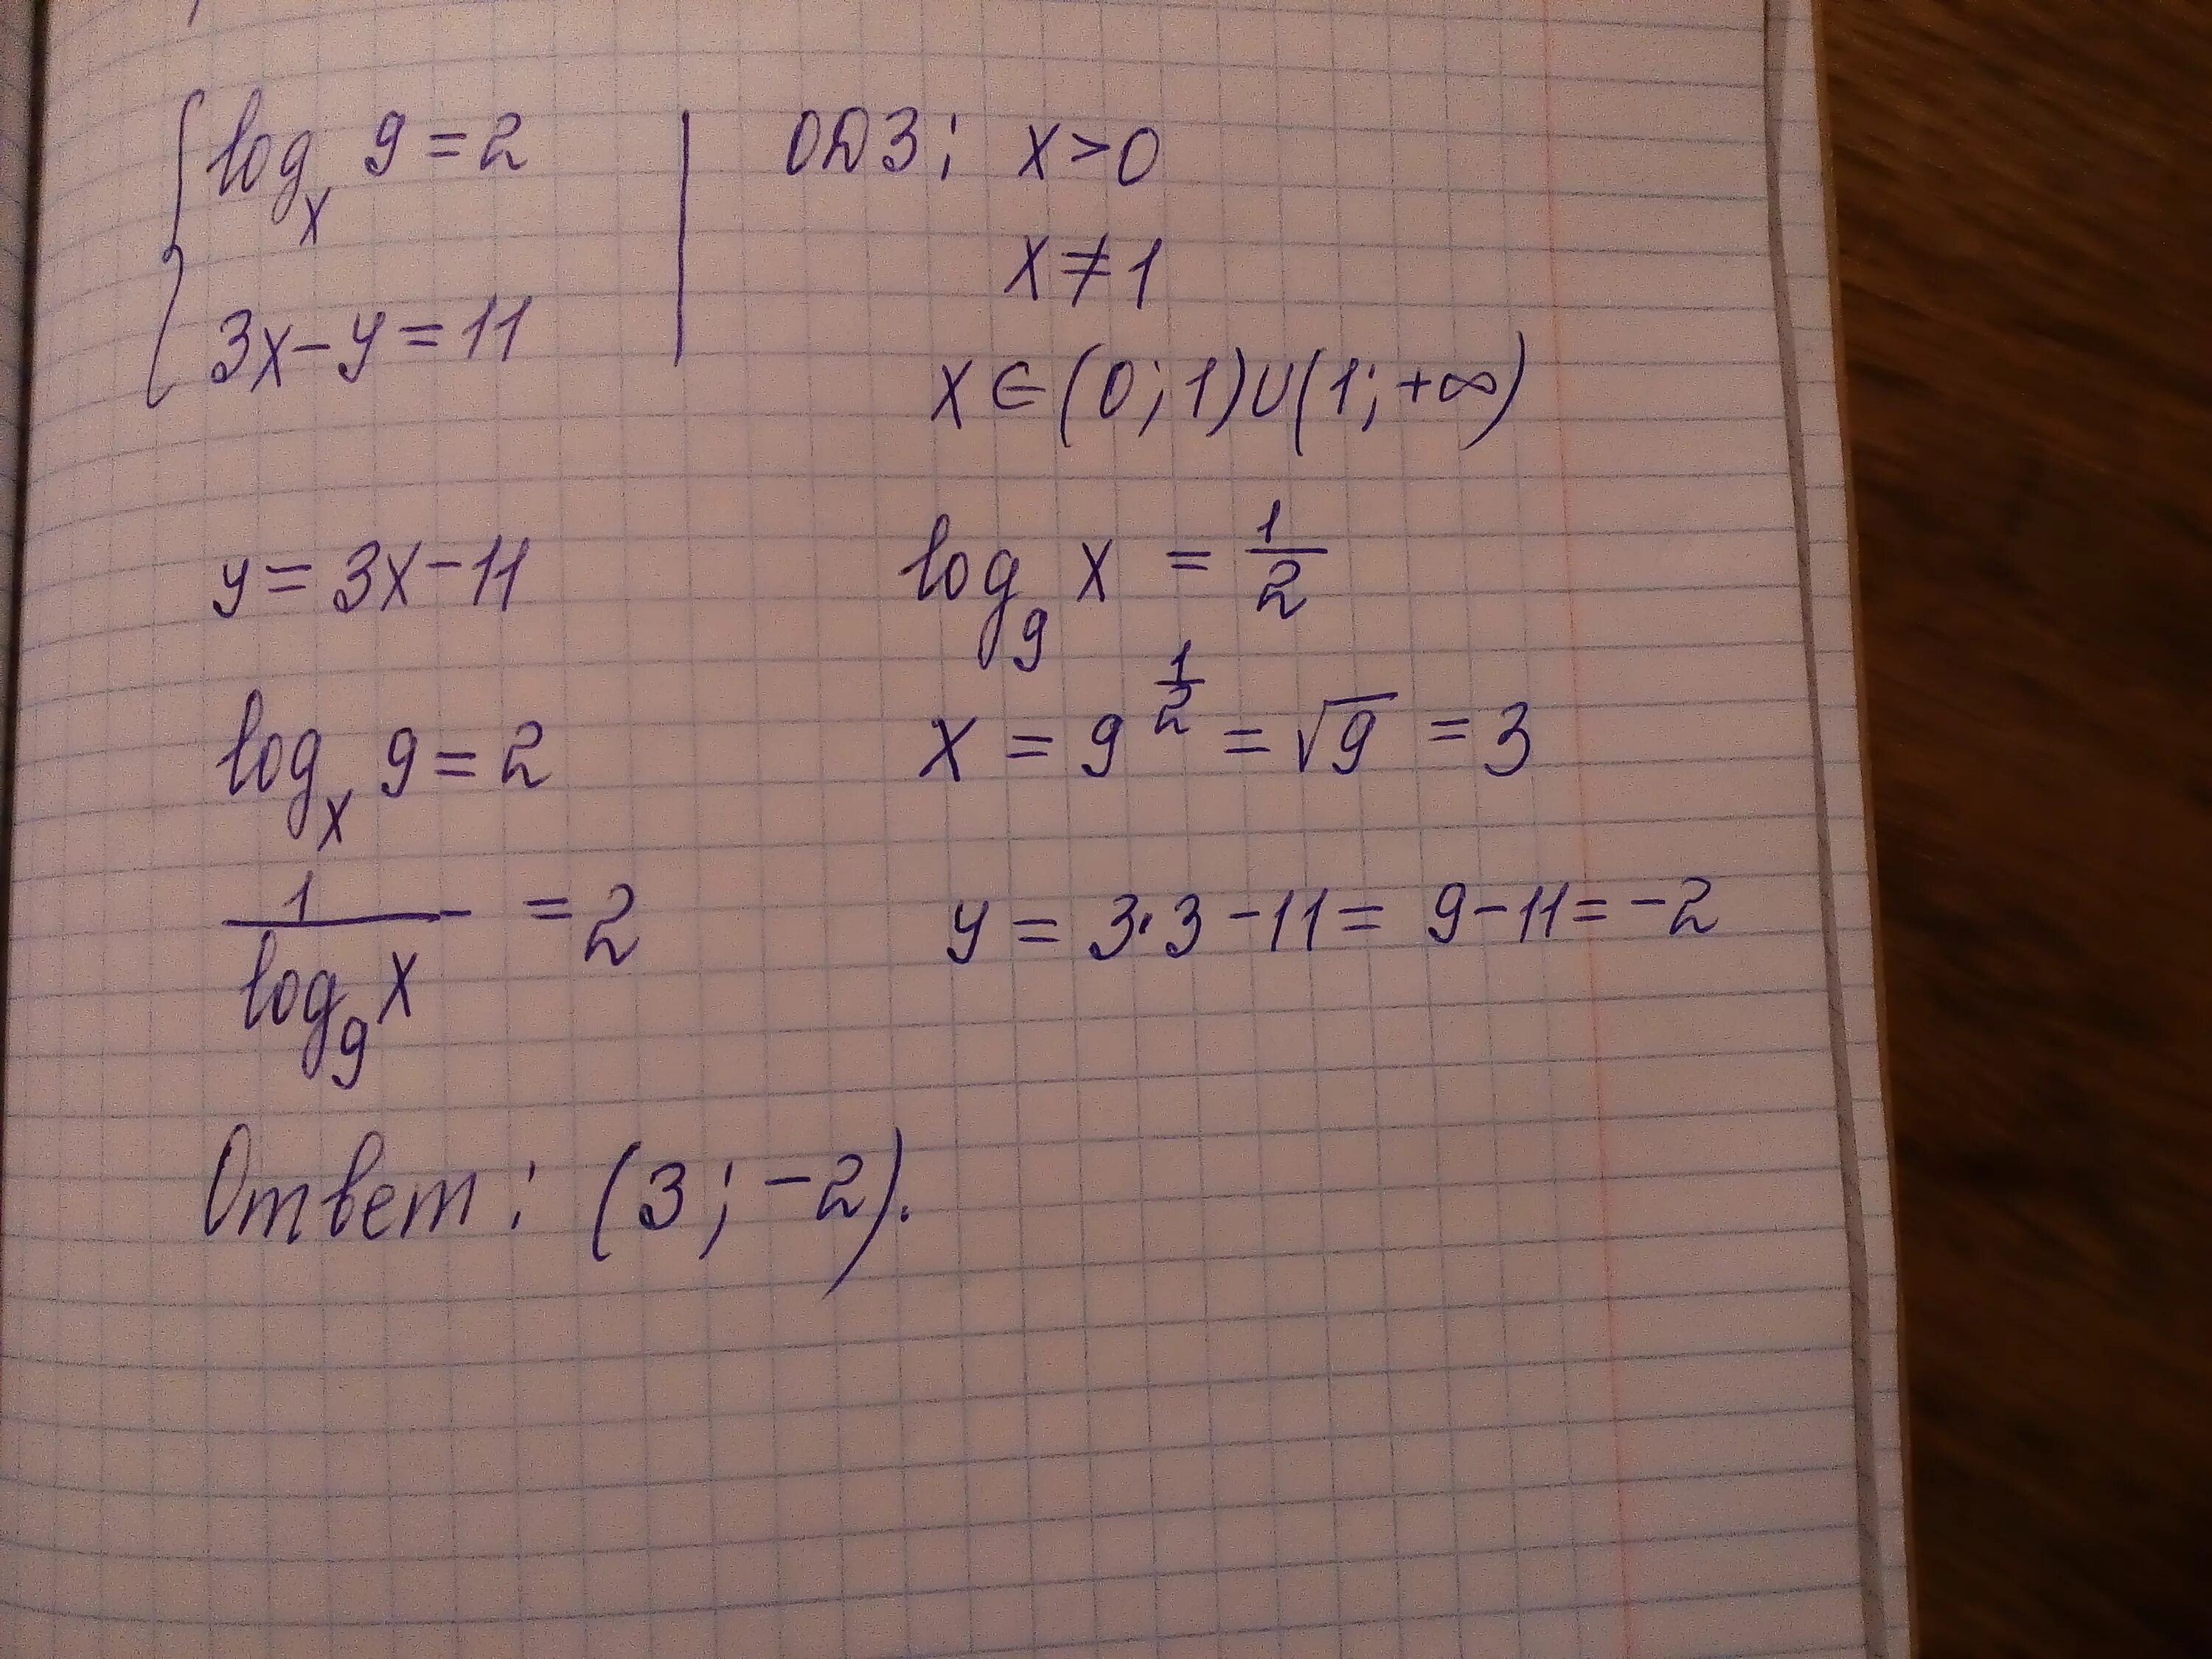 { log_x 9 = 2
3x - y = 11
ОДЗ: x > 0
x ≠ 1
x ∈ (0; 1) ∪ (1; +∞)
y = 3x - 11
log_x 9 = 2
1/log_9 x = 2
log_9 x = 1/2
x = 9^(1/2) = √9 = 3
y = 3·3 - 11 = 9 - 11 = -2
Ответ: (3; -2).